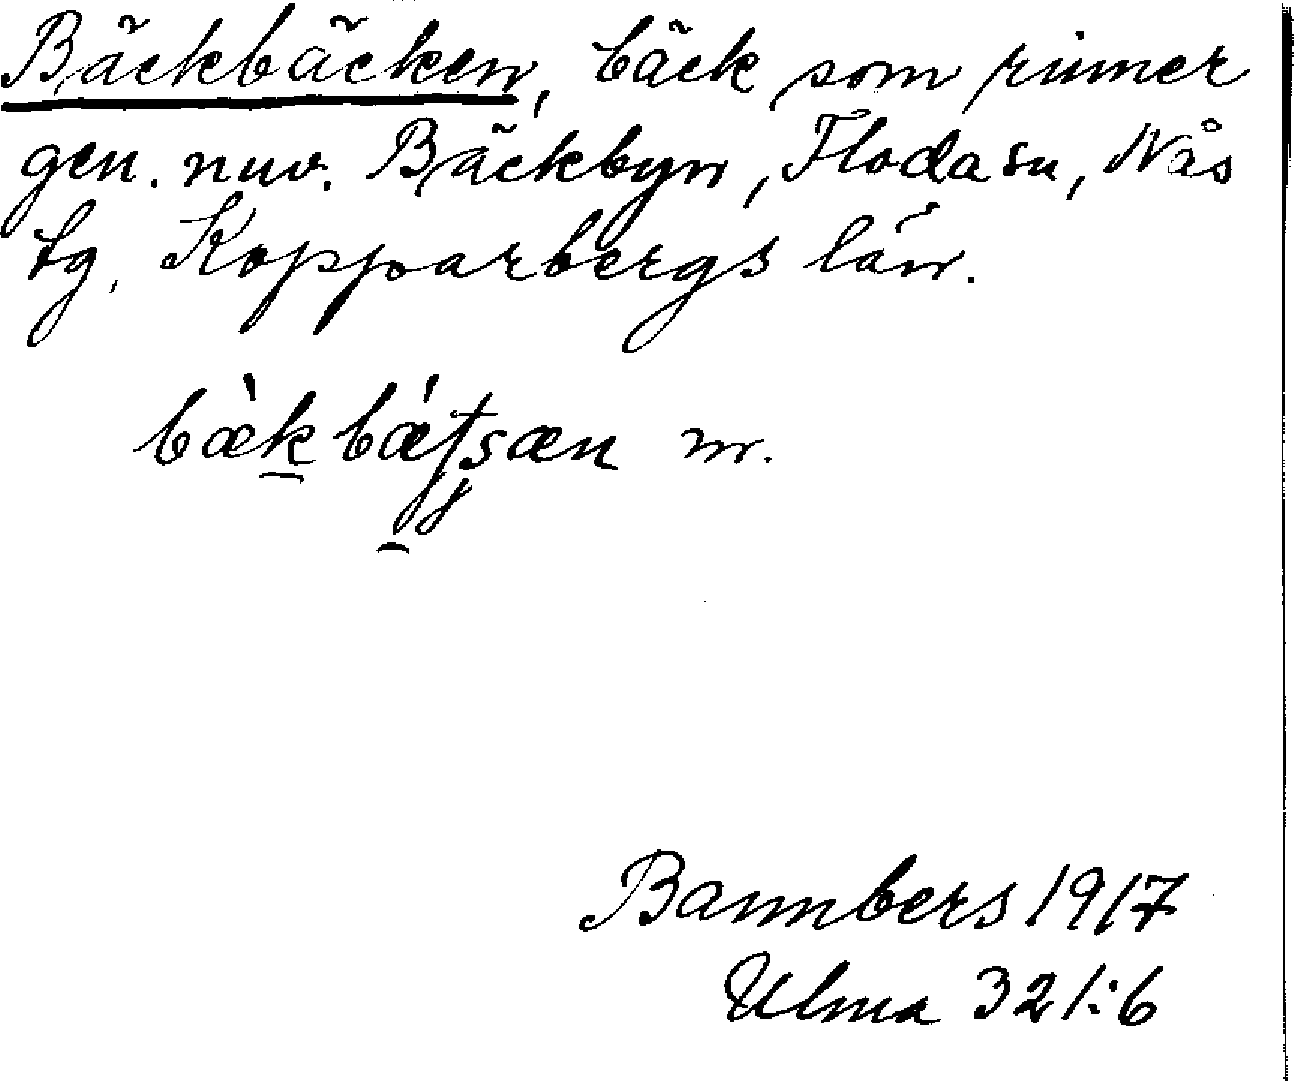 Bäckbäcken, bäck som rinner
gen. nuv. Bäckbyn, Floda sn, Nås
tg, Kopparbergs län.
m.
Bannbers 1917
Ulma 321:6